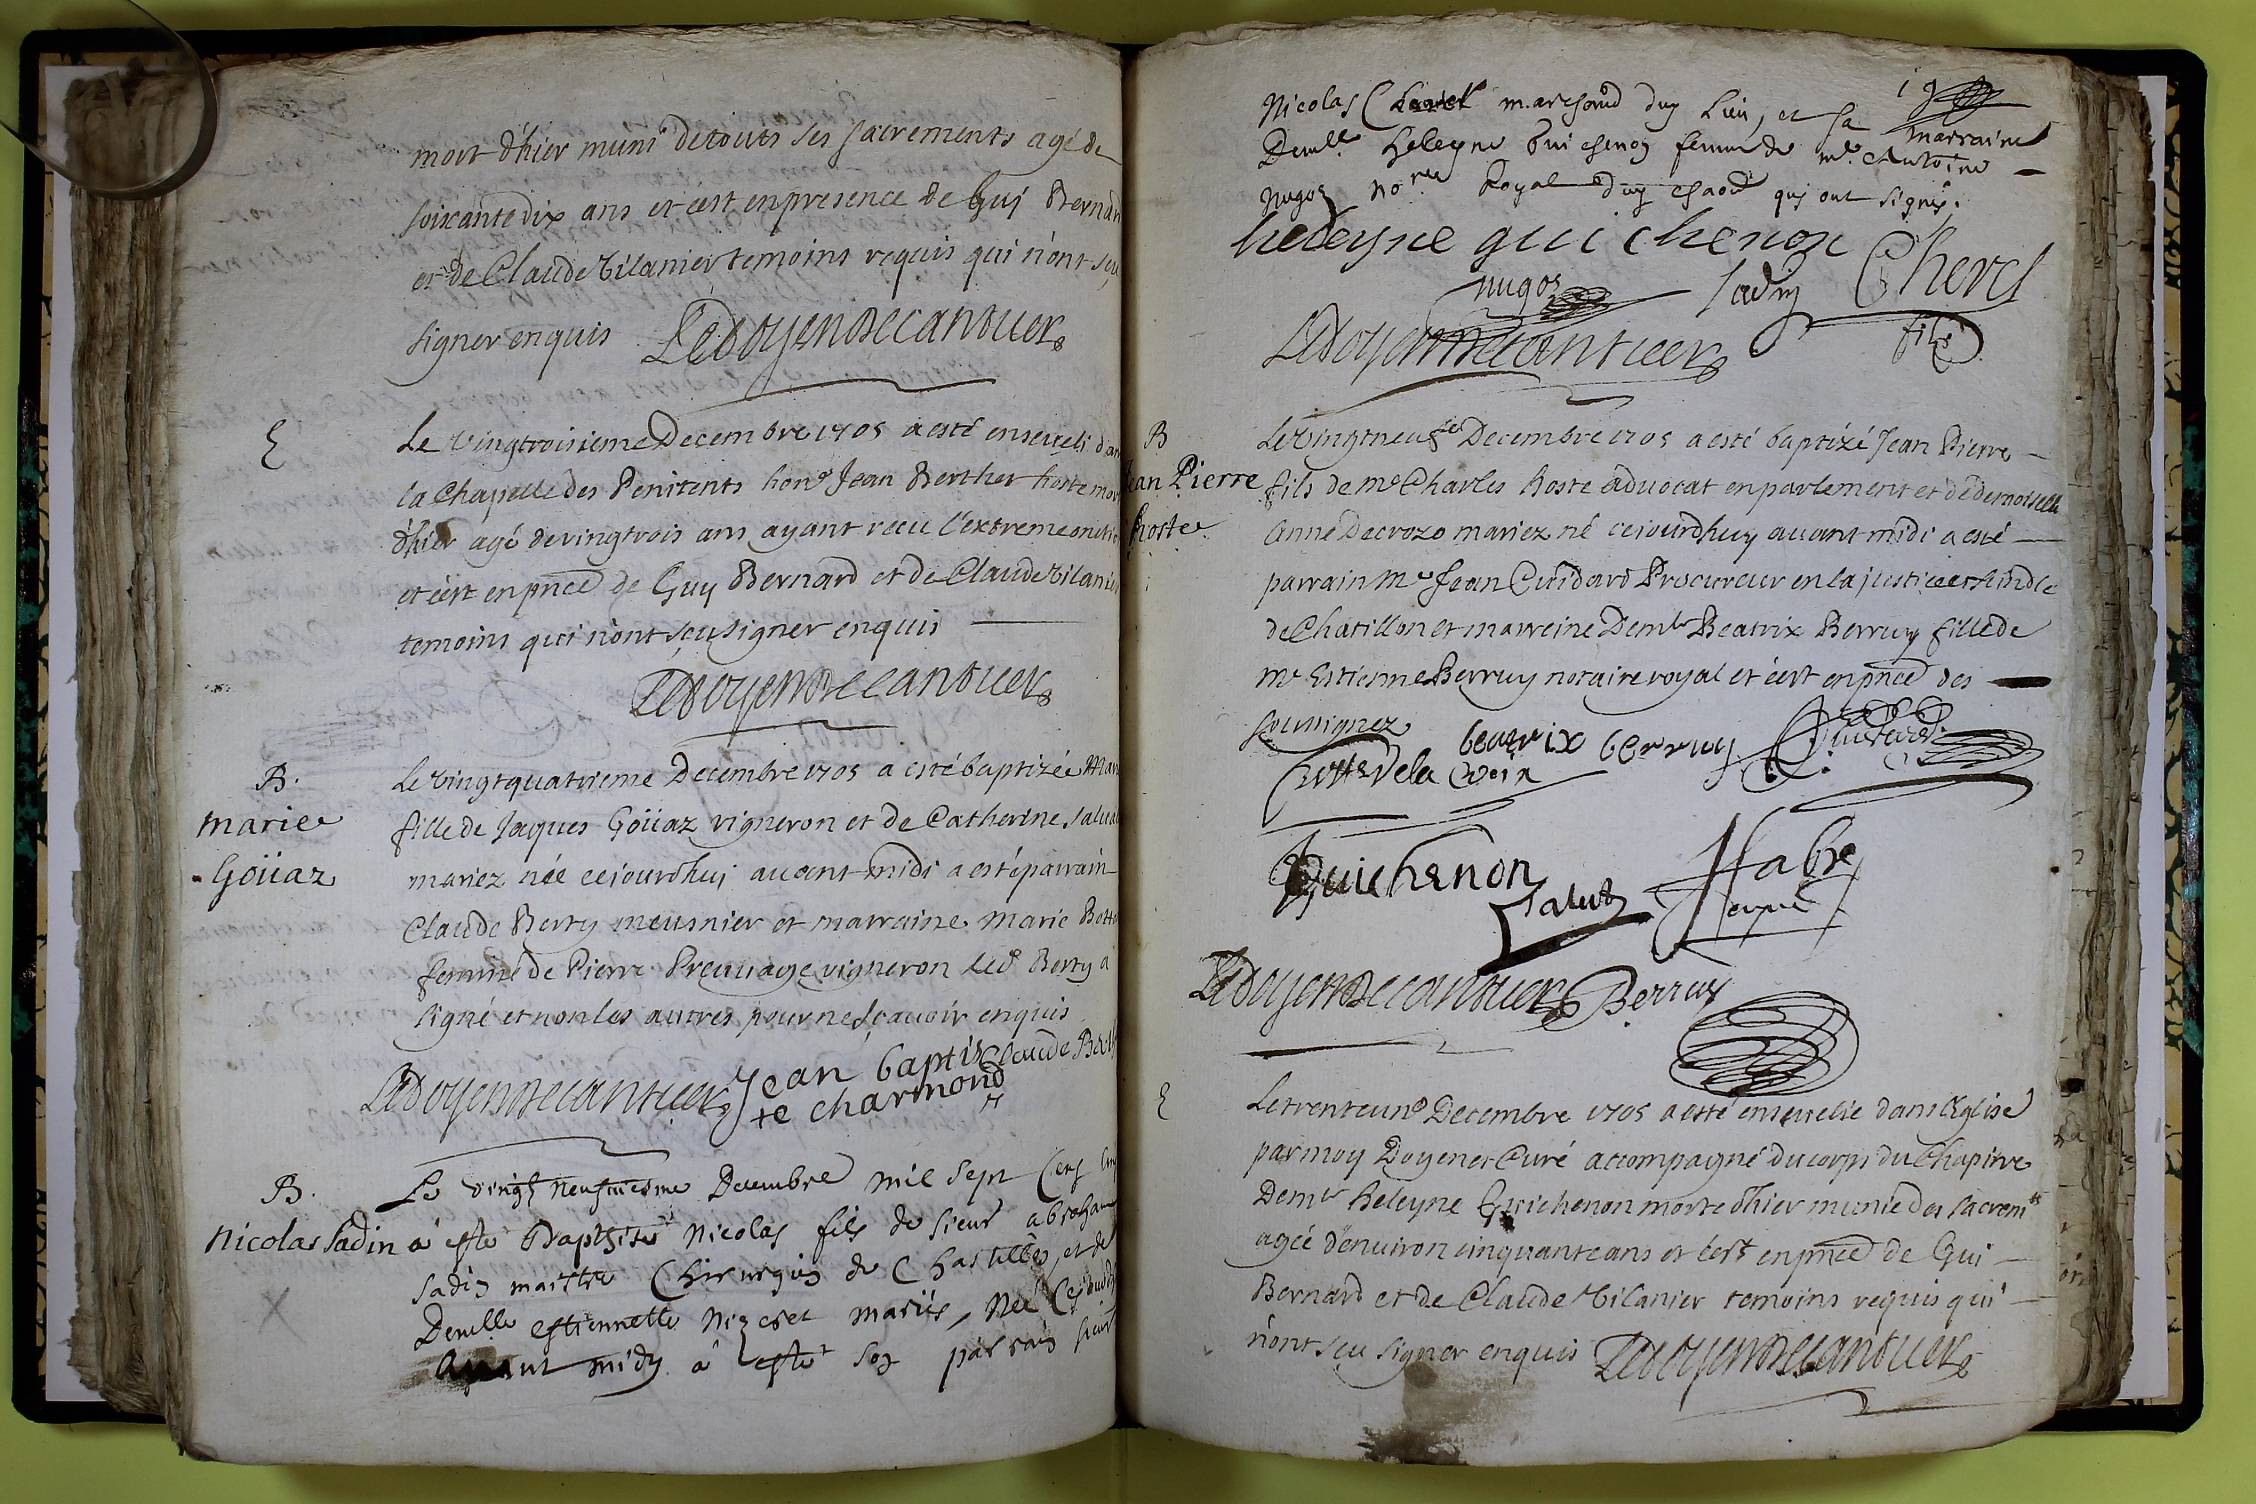 mort d'hier muni de touts ses sacrements agé de
soixante dix ans et c'est en presence de Guj Bernard
et de Claude Vilanier temoins requis qui n'ont sçu
signer enquis Ledoyen Decantuer
E
Le vingtroisieme Decembre 1705 a esté enseveli dans
la Chapelle des Penitents hono Jean Berthet hoste mort
d'hier agé de vingtrois ans ayant recu l'extremeonction
et c'est en pnce de Guy Bernard et de Claude Vilanier
temoins qui n'ont sçu signer enquis
Ledoyen Decantuer
B.
marie
Goüaz
Le vingtquatrieme Decembre 1705 a esté baptizée Marie
fille de Jaques Goüaz vigneron et de Catherine
mariez née cejourdhuj avant midi a esté parrain
Claude Berty meusnier et marraine Marie
femme de Pierre Preuuage vigneron led Berty a
signé et non les autres pour ne sçavoir enquis
Ledoyen Decantuer Jean baptis Claude
te charmond
B.
Nicolas Sadin
X
Le vingt neufviesme Decembre mil sept Cens
a esté Baptisé Nicolas fils de sieur abraham
Sadin maistre Chirurgien de Chastillon, et de
Demlle estiennette Nizeret mariés, Né Cejourdhuy
avant midy a esté son parrain sieur
19
Nicolas Chevel marchand duy Lieu, et sa marraine
Demlle heleyne Guichenon femme de me Antoine
Nugos nore Royal duy chaon quj ont signé.
heleyne guichenon
nugos Sadin Chevel
fils
Ledoyen Decantuer
B
Jean Pierre
hoste
Le vingtneufe Decembre 1705 a esté baptizé Jean Pierre
fils de me Charles hoste advocat en parlement et de demoiselle
Anne Decrozo mariez né cejourdhuy avant midi a esté
parrain Me Jean Cuidard Procureur en la justice et
de Chatillon et marreine Demlle Beatrix Berruy fille de
me Estiesme Berruy notaire royal et c'est en pnce des
soussignez
beatrix berruy
de la
Guichenon
Salut
Fabre
Ledoyen Decantuer Berruy
E
Le trenteuno Decembre 1705 a esté ensevelie dans l'Eglise
par moy Doyen et Curé accompagné du corps du Chapitre
Demlle heleyne Guichenon morte d'hier munie des sacremts
agée d'environ cinquante ans et c'est en pnce de Gui
Bernard et de Claude Vilanier temoins requis qui
n'ont sçu signer enquis Ledoyen Decantuer